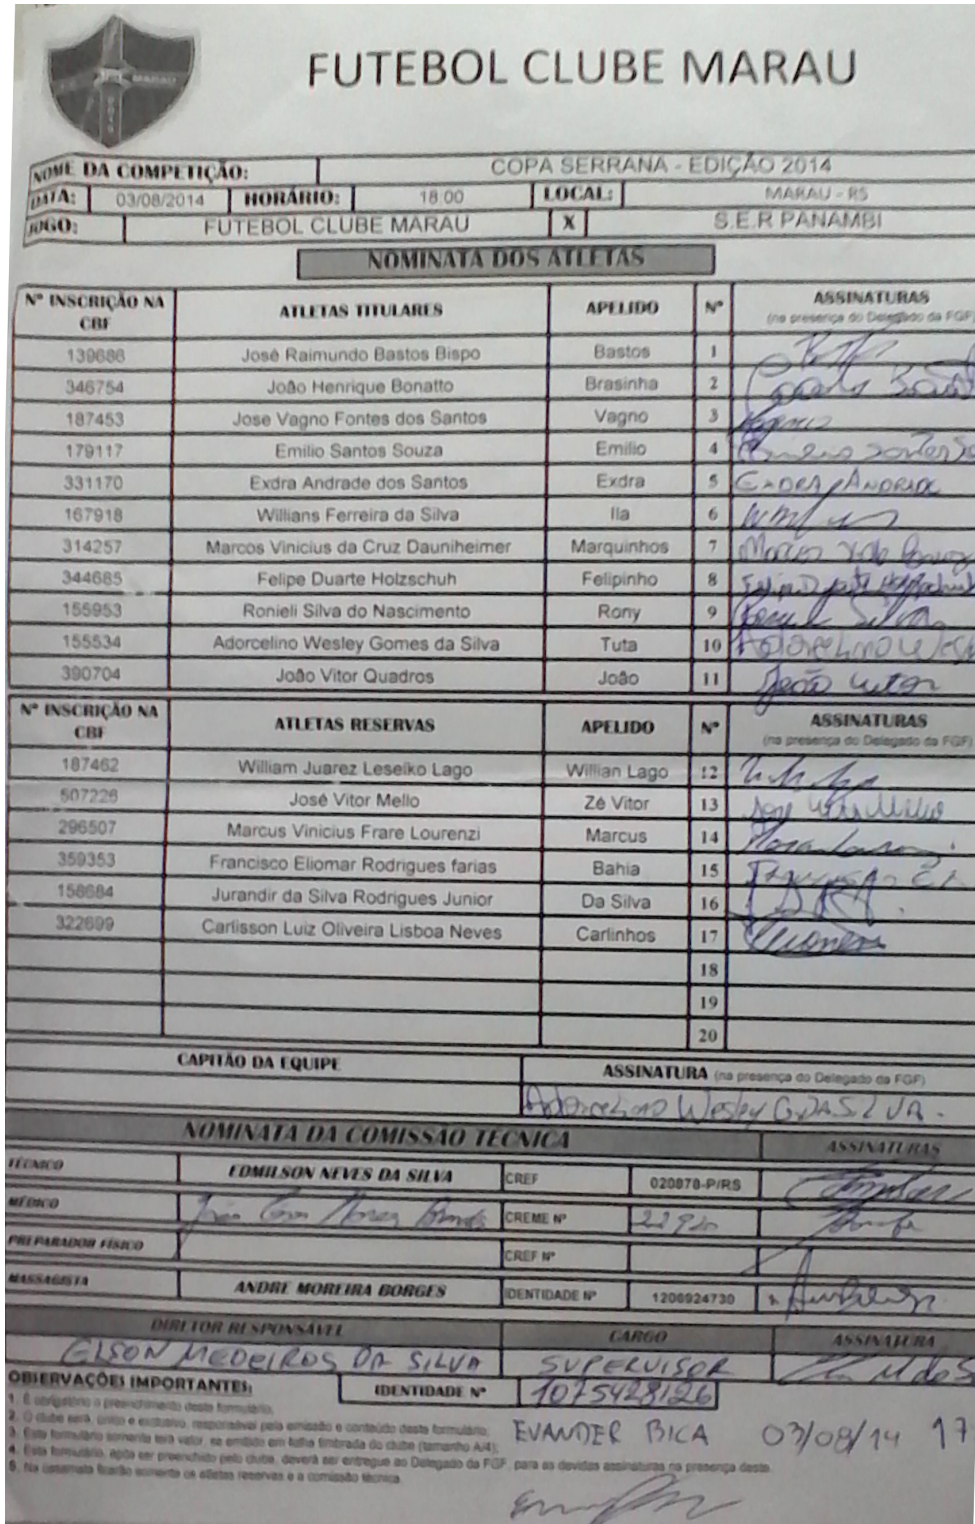 FUTEBOL CLUBE MARAU
MARAU
NOME DA COMPETIÇÃO: COPA SERRANA - EDIÇÃO 2014
DATA: 03/08/2014 HORÁRIO: 18:00 LOCAL: MARAU - RS
JOGO: FUTEBOL CLUBE MARAU X S.E.R PANAMBI
NOMINATA DOS ATLETAS
Nº INSCRIÇÃO NA CBF ATLETAS TITULARES APELIDO Nº ASSINATURAS (na presença do Delegado da FGF)
139688 José Raimundo Bastos Bispo Bastos 1
346754 João Henrique Bonatto Brasinha 2
187453 Jose Vagno Fontes dos Santos Vagno 3 Vagno
179117 Emilio Santos Souza Emilio 4
331170 Exdra Andrade dos Santos Exdra 5 EXDRA ANDRADE
167918 Willians Ferreira da Silva Ila 6
314257 Marcos Vinicius da Cruz Dauniheimer Marquinhos 7 Marcos
344685 Felipe Duarte Holzschuh Felipinho 8 Felipe Duarte Holzschuh
155953 Ronieli Silva do Nascimento Rony 9 Silva
155534 Adorcelino Wesley Gomes da Silva Tuta 10 Adorcelino Wesl
390704 João Vitor Quadros João 11 João Vitor
Nº INSCRIÇÃO NA CBF ATLETAS RESERVAS APELIDO Nº ASSINATURAS (na presença do Delegado da FGF)
187462 William Juarez Leseiko Lago Willian Lago 12
507226 José Vitor Mello Zé Vitor 13 José Vitor Mello
296507 Marcus Vinicius Frare Lourenzi Marcus 14
359353 Francisco Eliomar Rodrigues farias Bahia 15
158684 Jurandir da Silva Rodrigues Junior Da Silva 16
322699 Carlisson Luiz Oliveira Lisboa Neves Carlinhos 17
18
19
20
CAPITÃO DA EQUIPE ASSINATURA (na presença do Delegado da FGF)
Adorcelino Wesley G. DA SILVA.
NOMINATA DA COMISSÃO TÉCNICA ASSINATURAS
TÉCNICO EDMILSON NEVES DA SILVA CREF 020878-P/RS
MÉDICO CREME Nº
PREPARADOR FÍSICO CREF Nº
MASSAGISTA ANDRE MOREIRA BORGES IDENTIDADE Nº 1206924730
DIRETOR RESPONSÁVEL CARGO ASSINATURA
ELSON MEDEIROS DA SILVA SUPERVISOR
OBSERVAÇÕES IMPORTANTES: IDENTIDADE Nº 1075428126
1. É obrigatório o preenchimento deste formulário;
2. O clube será, único e exclusivo, responsável pela emissão e conteúdo deste formulário;
3. Este formulário somente terá valor, se emitido em folha timbrada do clube (tamanho A/4);
4. Este formulário, após ser preenchido pelo clube, deverá ser entregue ao Delegado da FGF, para as devidas assinaturas na presença deste.
5. Na casamata ficarão somente os atletas reservas e a comissão técnica.
EVANDER BICA 03/08/14 17